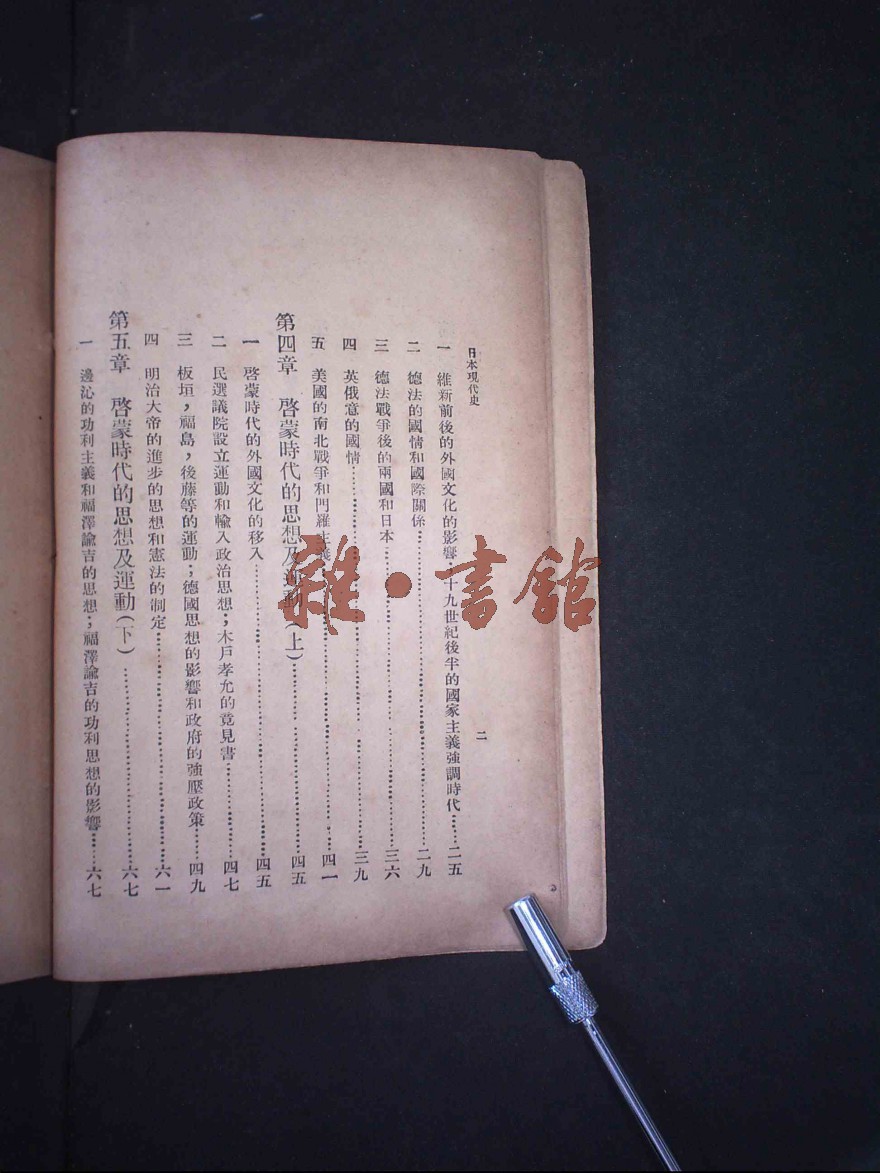 日本現代史
二
一 維新前後的外國文化的影響 十九世紀後半的國家主義強調時代……二五
二 德法的國情和國際關係……二九
三 德法戰爭後的兩國和日本……三六
四 英俄意的國情……三九
五 美國的南北戰爭和門羅主義……四一
第四章 啓蒙時代的思想及運動(上)……四五
一 啓蒙時代的外國文化的移入……四五
二 民選議院設立運動和輸入政治思想；木戶孝允的意見書……四七
三 板垣，福島，後藤等的運動；德國思想的影響和政府的強壓政策……四九
四 明治大帝的進步的思想和憲法的制定……六一
第五章 啓蒙時代的思想及運動(下)……六七
一 邊沁的功利主義和福澤諭吉的思想；福澤諭吉的功利思想的影響……六七
雜·書館